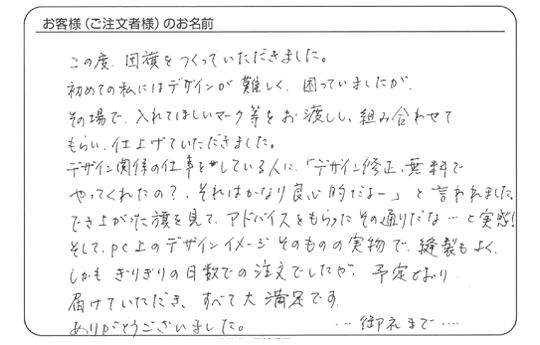 お客様（ご注文者様）のお名前
この度、団旗をつくっていただきました。
初めての私にはデザインが難しく、困っていましたが、
その場で、入れてほしいマーク等をお渡しし、組み合わせて
もらい、仕上げていただきました。
デザイン関係の仕事をしている人に、「デザイン修正、無料で
やってくれたの？、それはかなり良心的だよー」と言われました。
でき上がった旗を見て、アドバイスをもらった その通りだな…と実感!
そして、PC上のデザインイメージ そのものの実物で、縫製もよく、
しかも ぎりぎりの日数での注文でしたが、予定どおり
届けていただき、すべて大満足です。
ありがとうございました。 …御礼まで…